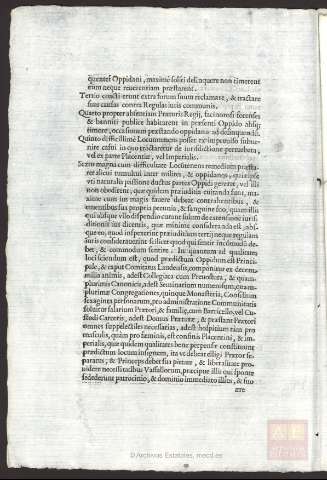 quentes Oppidani, maximè soliti delinquere non timerent
eum neque reuerentiam præstarent.
Tertio coacti erunt extra forum suum reclamare, & tractare
suas causas contra Regulas iuris communis.
Quarto propter absentiam Prætoris Regij, facinorosi forenses
& banniti publicè habitarent in præsenti Oppido absque
timore, occasionem præstando oppidanis ad delinquendum.
Quinto difficillimè Locumtenens posset ex improuiso
nire casui in quo tractaretur de iurisdictione perturbata,
vel ex parte Placentiæ, vel Imperialis.
Sexto magna cum difficultate Locumtenens remedium præsta
ret alicui tumultui inter milites, & oppidanos,
tri naturali passione ductus partes Oppidi gereret, vel illi
non obedirent; quæ quidem præiudicia euitanda sunt, ma
ximè cum ius magis fauere debeat contrahentibus, &
ementibus sua propria pecunia, & sanguine suo, quam illis
qui absque vllo dispendio curant solum de extensione iuris
ditionis ius dicentis, quæ minimè consideranda est, abs
que eo, quod inspiciatur præiudicium tertij, neque regulam
iuris considerantis scilicet quod qui sentit incommodum de
bet, & commodum sentire. In quantum ad qualitatem
loci sciendum est, quod prædictum Oppidum est Princi
pale, & caput Comitatus Laudensis, componitur ex decem
millia animis, adest Collegiata cum Præposito, & quam
plurimis Canonicis, adest Seminarium numerosum, quam
plurimæ Congregationes, quinque Monasteria, Consilium
sexaginta personarum, pro administratione Communitatis
soluitur salarium Prætori, & familiæ, cum Barricello, vel Cu
stodi Carceris, adest Domus Præturæ, & præstant Prætori
omnes suppellectiles necessarias, adest hospitium tàm pro
masculis, quàm pro fœminis, est confinis Placentini, & im
perialis, quæ quidem qualitates benè perpensæ constituunt
prædictum locum insignem, ita vt debeat elligi Prætor se
paratus, & Princeps debet sua pietate, & liberalitate pro
uidere necessitatibus Vassallorum, præcipuè illis qui sponte
se dederunt patrocinio, & dominio immediato istius, & suo
ære
© Archivos Estatales, mecd.es